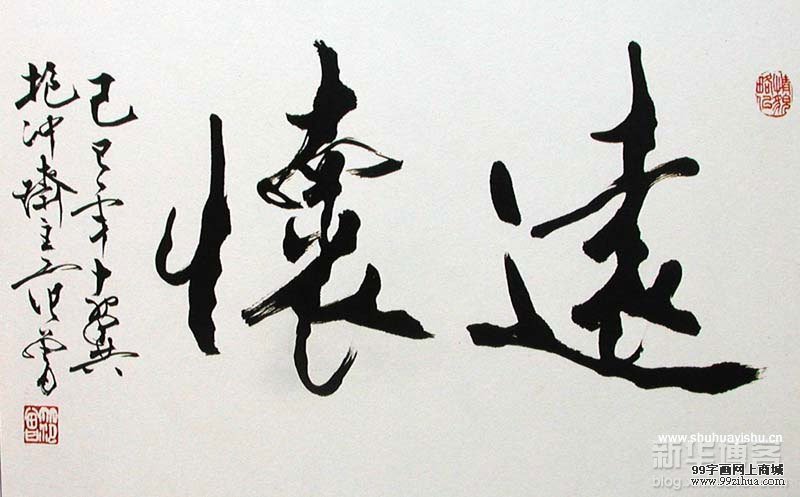 遠懷
己巳年十翼
抱冲齋主范曾
范曾
www.shuhuayishu.cn
新华博客
99字画网上商城
www.99zihua.com